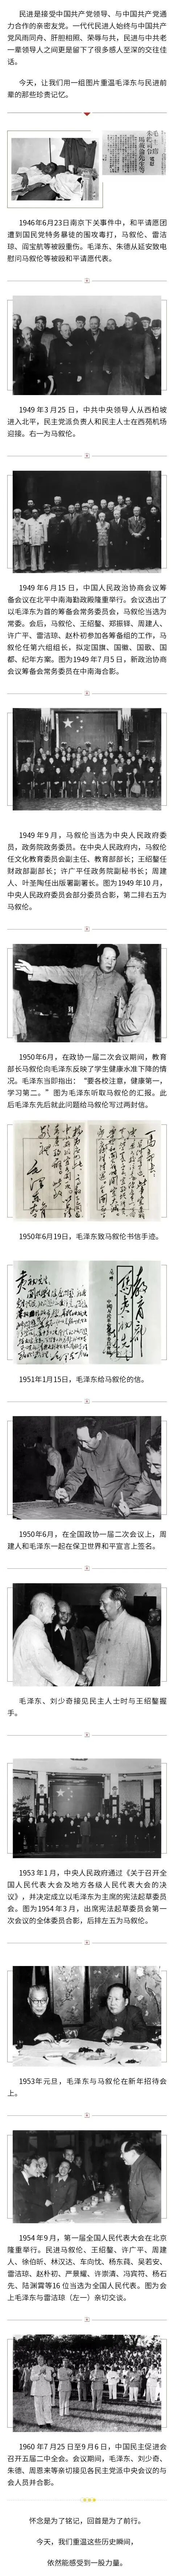 民进是接受中国共产党领导、与中国共产党通
力合作的亲密友党。一代代民进人始终与中国共产
党风雨同舟、肝胆相照、荣辱与共，民进与中共老
一辈领导人之间更是留下了很多感人至深的交往佳
话。
今天，让我们用一组图片重温毛泽东与民进前
辈的那些珍贵记忆。
1946年6月23日南京下关事件中，和平请愿团
遭到国民党特务暴徒的围攻毒打，马叙伦、雷洁
琼、阎宝航等被殴重伤。毛泽东、朱德从延安致电
慰问马叙伦等被殴和平请愿代表。
1949年3月25日，中共中央领导人从西柏坡
进入北平，民主党派负责人和民主人士在西苑机场
迎接。右一为马叙伦。
1949年6月15日，中国人民政治协商会议筹
备会议在北平中南海勤政殿隆重举行。会议选出了
以毛泽东为首的筹备会常务委员会，马叙伦当选为
常委。会后，马叙伦、王绍鏊、郑振铎、周建人、
许广平、雷洁琼、赵朴初参加各筹备组的工作，马
叙伦任第六组组长，拟定国旗、国徽、国歌、国
都、纪年方案。图为1949年7月5日，新政治协商
会议筹备会常务委员在中南海合影。
1949年9月，马叙伦当选为中央人民政府委
员，政务院政务委员。在中央人民政府内，马叙伦
任文化教育委员会副主任、教育部部长；王绍鏊任
财政部副部长；许广平任政务院副秘书长；周建
人、叶圣陶任出版署副署长。图为1949年10月，
中央人民政府委员会部分委员合影，第二排右五为
马叙伦。
1950年6月，在政协一届二次会议期间，教育
部长马叙伦向毛泽东反映了学生健康水准下降的情
况。毛泽东当即指出：“要各校注意，健康第一，
学习第二。”图为毛泽东听取马叙伦的汇报。此
后毛泽东先后就此问题给马叙伦写过两封信。
1950年6月19日，毛泽东致马叙伦书信手迹。
1951年1月15日，毛泽东给马叙伦的信。
1950年6月，在全国政协一届二次会议上，周
建人和毛泽东一起在保卫世界和平宣言上签名。
毛泽东、刘少奇接见民主人士时与王绍鏊握
手。
1953年1月，中央人民政府通过《关于召开全
国人民代表大会及地方各级人民代表大会的决
议》，并决定成立以毛泽东为主席的宪法起草委员
会。图为1954年3月，出席宪法起草委员会第一
次会议的全体委员合影，后排左五为马叙伦。
1953年元旦，毛泽东与马叙伦在新年招待会
上。
1954年9月，第一届全国人民代表大会在北京
隆重举行。民进马叙伦、王绍鏊、许广平、周建
人、徐伯昕、林汉达、车向忱、杨东莼、吴若安、
雷洁琼、赵朴初、严景耀、许崇清、冯宾符、杨石
先、陆渊雷等16位当选为全国人民代表。图为会
上毛泽东与雷洁琼（左一）亲切交谈。
1960年7月25日至9月6日，中国民主促进会
召开五届二中全会。会议期间，毛泽东、刘少奇、
朱德、周恩来等亲切接见各民主党派中央会议的与
会人员并合影。
怀念是为了铭记，回首是为了前行。
今天，我们重温这些历史瞬间，
依然能感受到一股力量。